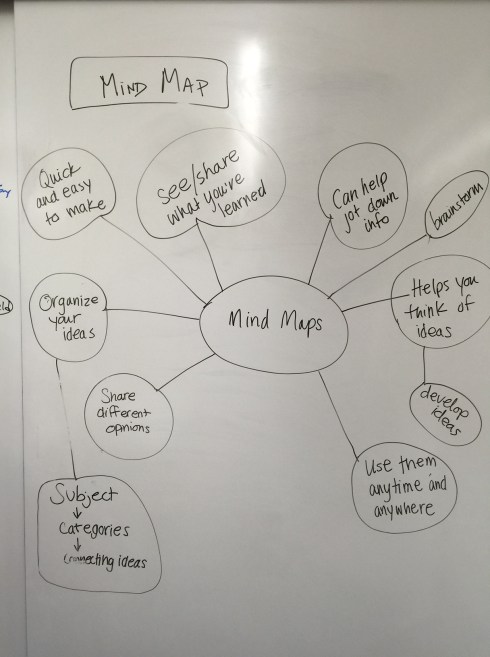 MIND MAP
Quick
and easy
to make
see/share
what you're
learned
Can help
jot down
info
brainstorm
Organize
your
ideas
Mind Maps
Helps you
think of
ideas
Share
different
opinions
develop
ideas
Use them
anytime and
anywhere
Subject
↓
Categories
↓
connecting ideas